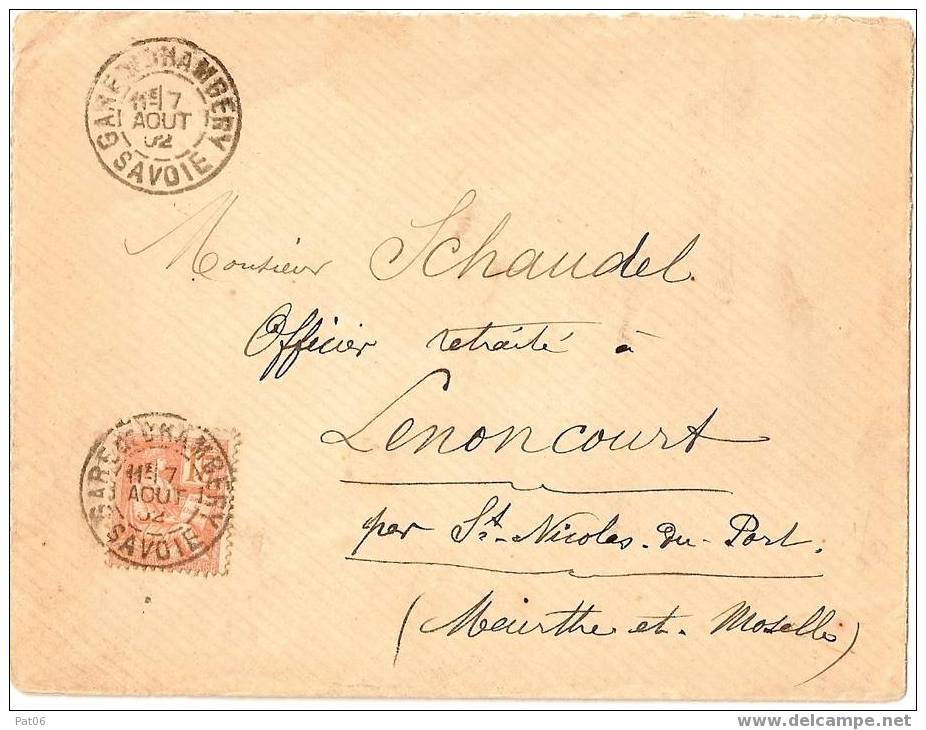 GARE DE CHAMBERY
11E/7
AOUT
02
SAVOIE
Monsieur Schaudel
Officier retraité à
Lenoncourt
par St-Nicolas-du-Port.
(Meurthe et-Moselle)
GARE DE CHAMBERY
11E/7
AOUT
02
SAVOIE
Pat06
www.delcampe.net